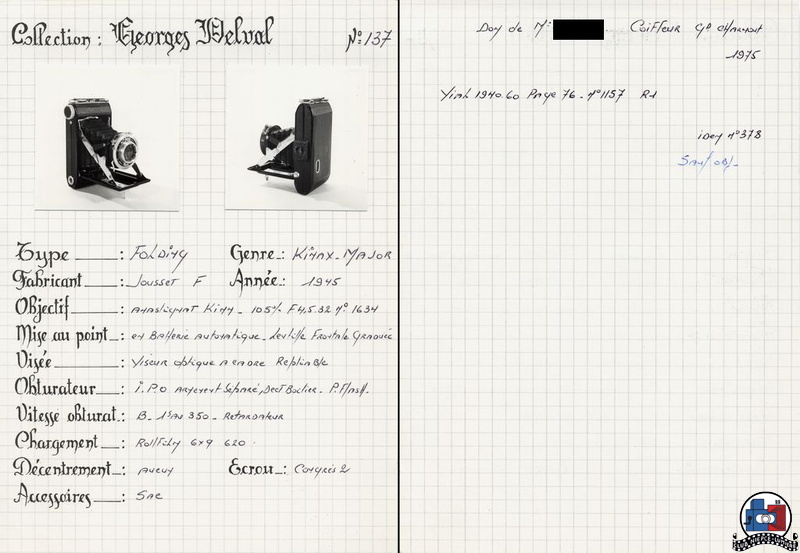 Collection : Georges Delval N°:137
Type : Folding Genre : Kinax-Major
Fabricant : Jousset F Année : 1945
Objectif : anastigmat Kiny - 105% F4,5.32 n° 1634
Mise au point : en Batterie automatique - Lentille Frontale Graduée
Visée : Viseur optique a cadre Repliable
Obturateur : i.P.O armement Séparé, Dect Boitier - P.Flash.
Vitesse obturat. : B - 1s au 350 - Retardateur
Chargement : Rollfilm 6x9 620
Décentrement : aucun Ecrou : Congrès 2
Accessoires : Sac
Don de Mr Coiffeur Gd
1975
1940.60 Page 76 - n°1157 R1
idem n°378
Sauf obj-